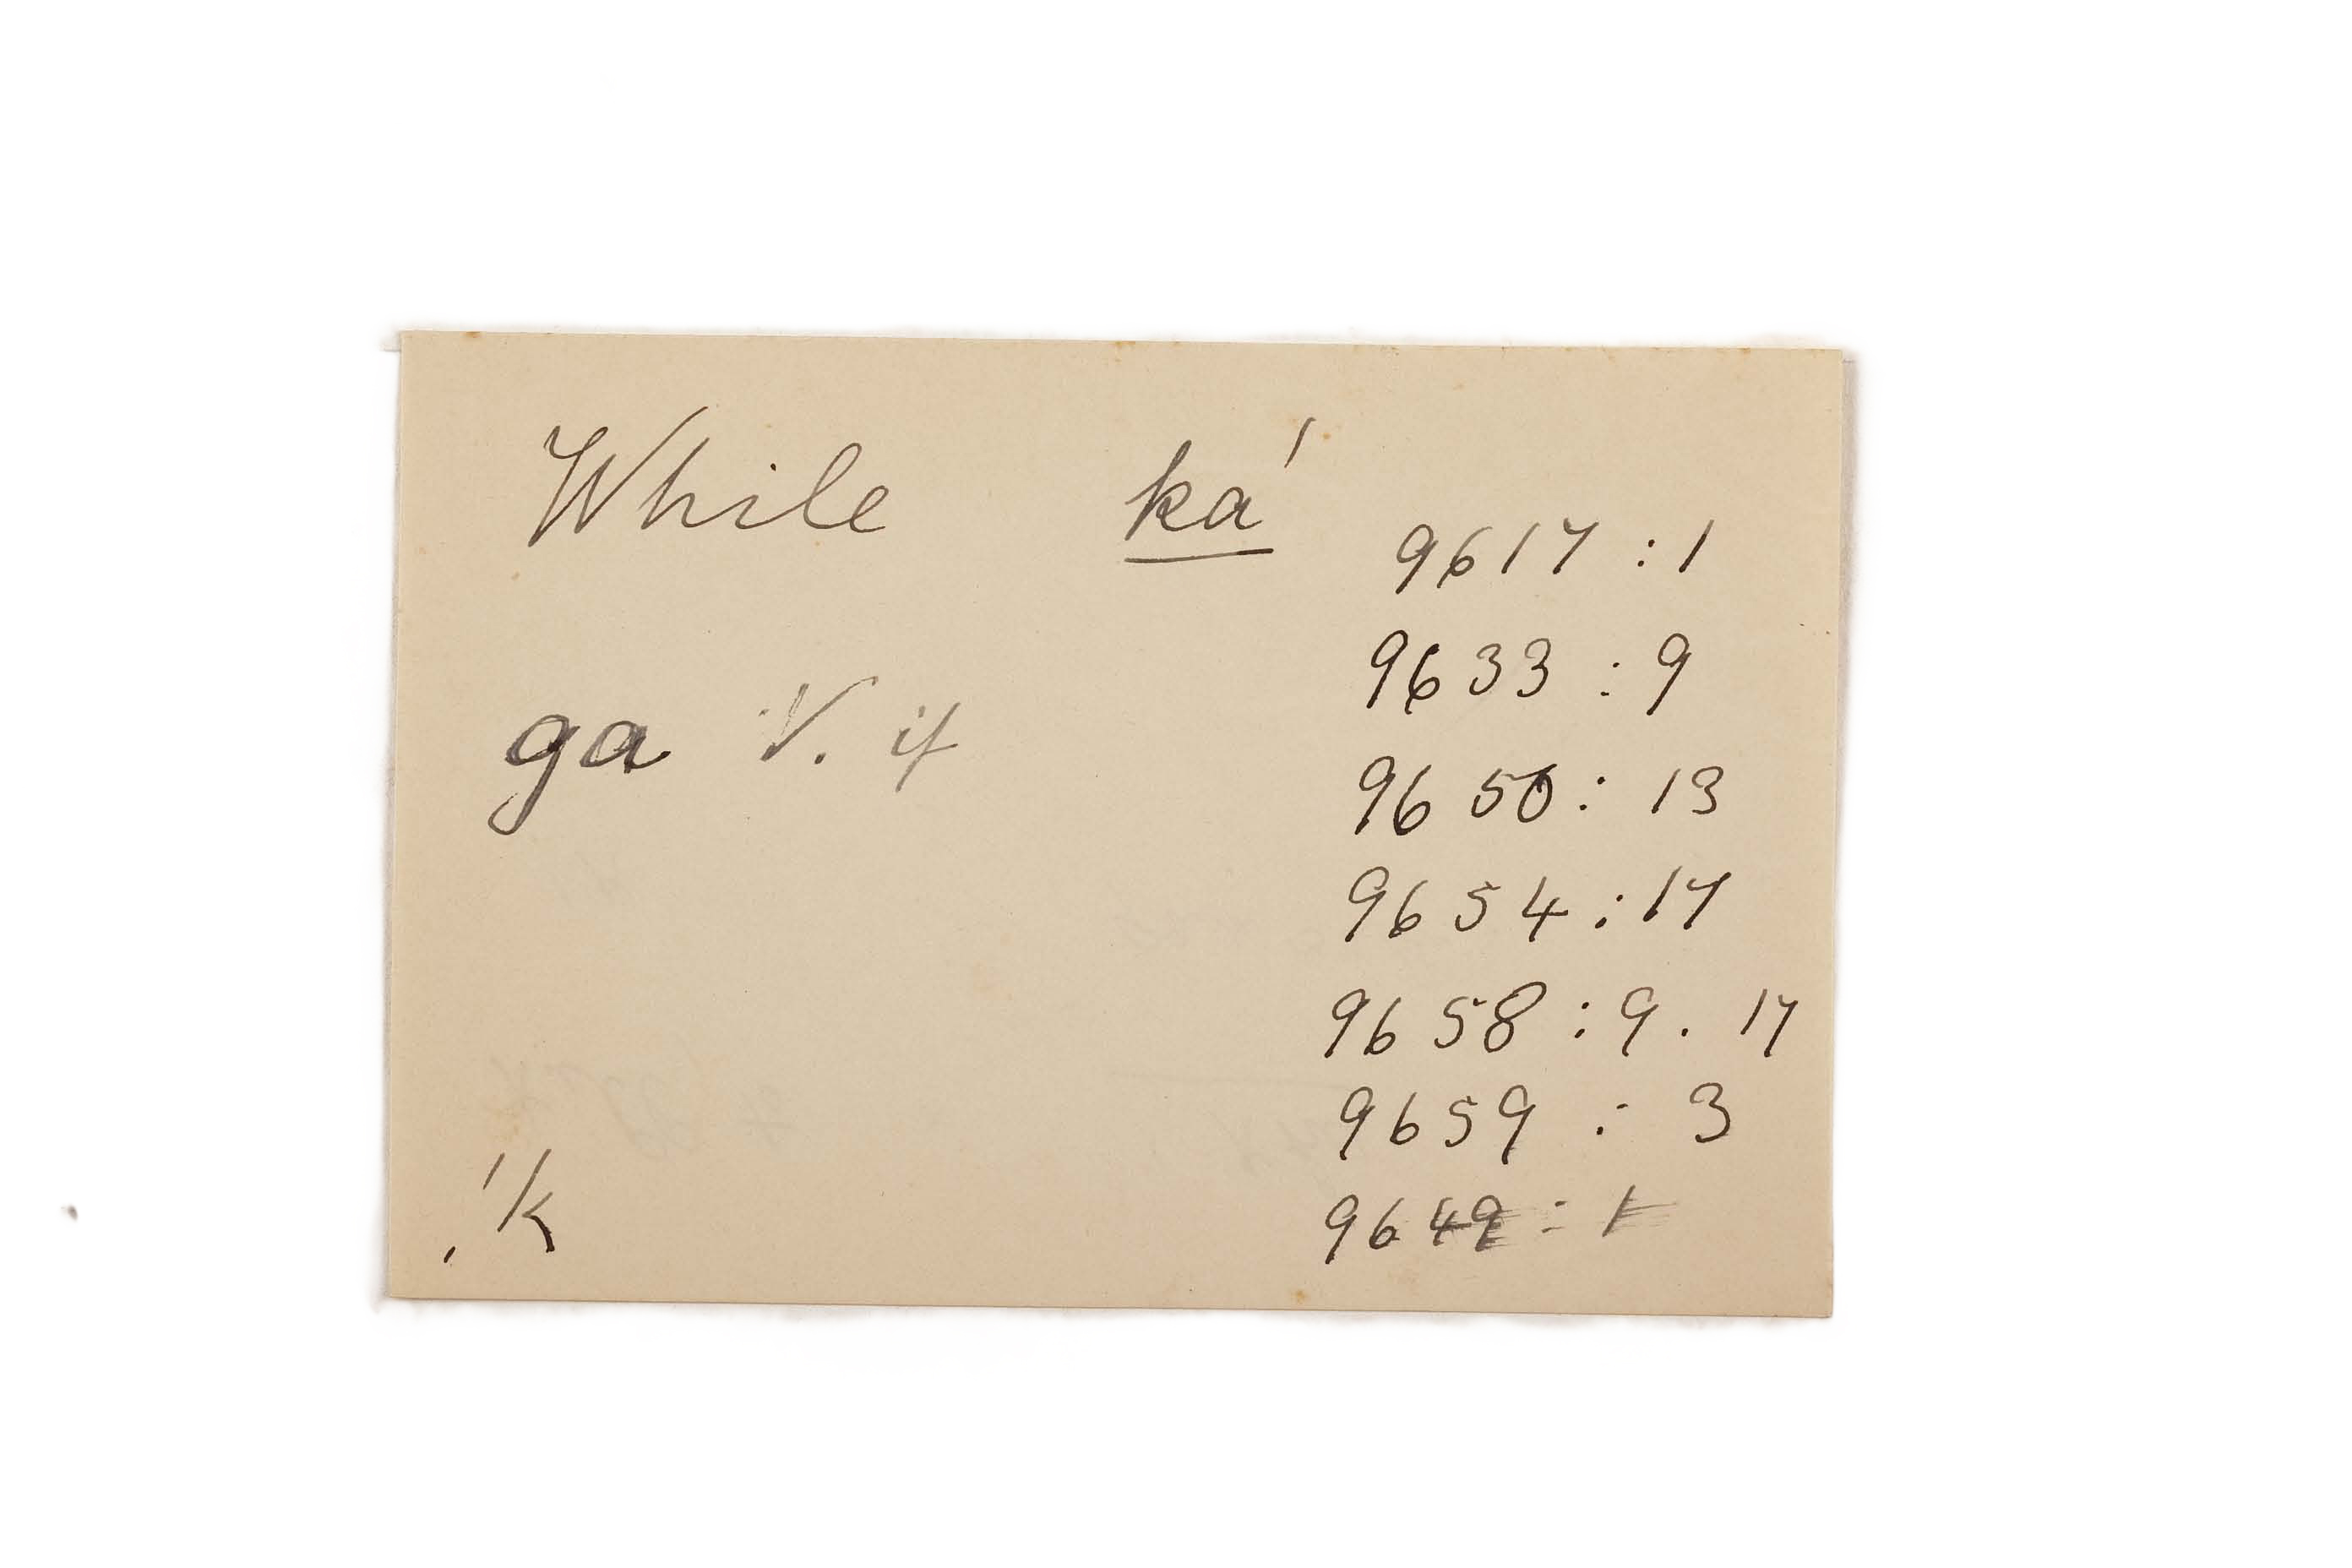 While ká
9617 : 1
9633 : 9
ga V. if
9650 : 13
9654 : 17
9658 : 9. 17
9659 : 3
!k
9649 : 1